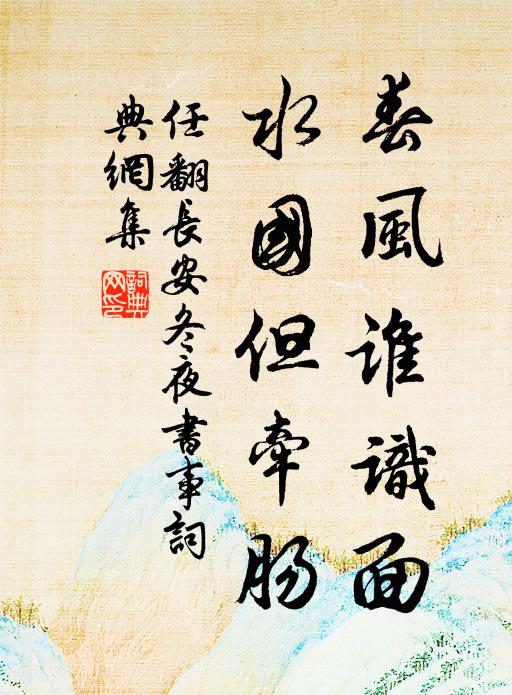 春風誰識面
水國但牽腸
任翻長安冬夜書事詞
典網集
詞典網印